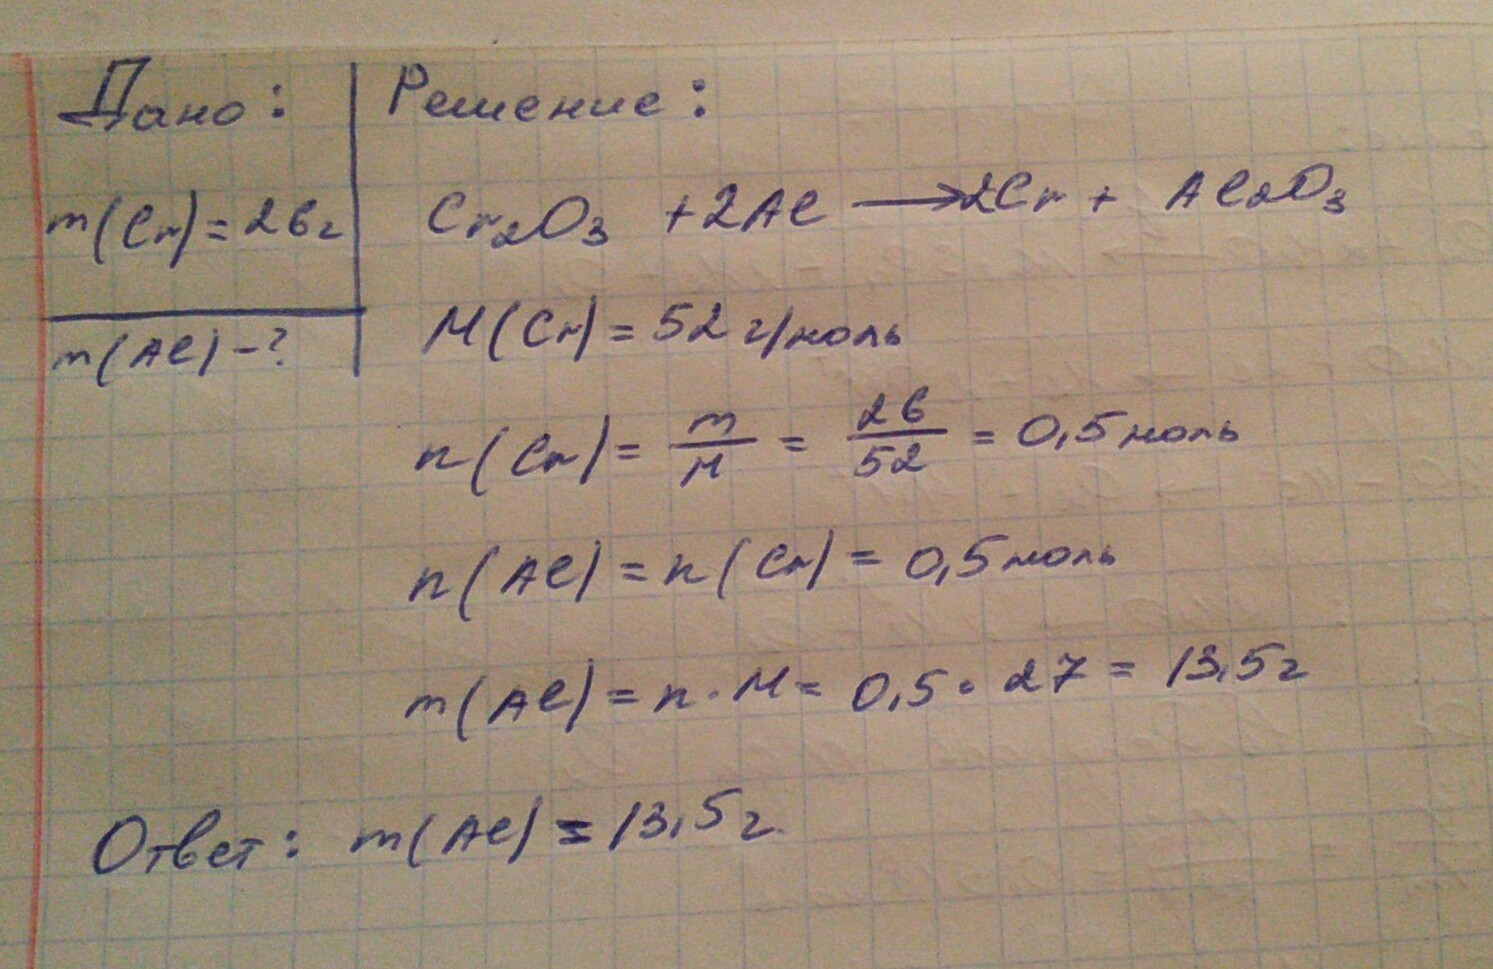 Дано:
m(Cr)=26г
m(Al)-?
Решение:
Cr₂O₃ +2Al ⟶2Cr + Al₂O₃
M(Cr)=52 г/моль
n(Cr)= m/M = 26/52 = 0,5моль
n(Al)=n(Cr)= 0,5моль
m(Al)=n·M= 0,5·27= 13,5г
Ответ: m(Al)=13,5г.